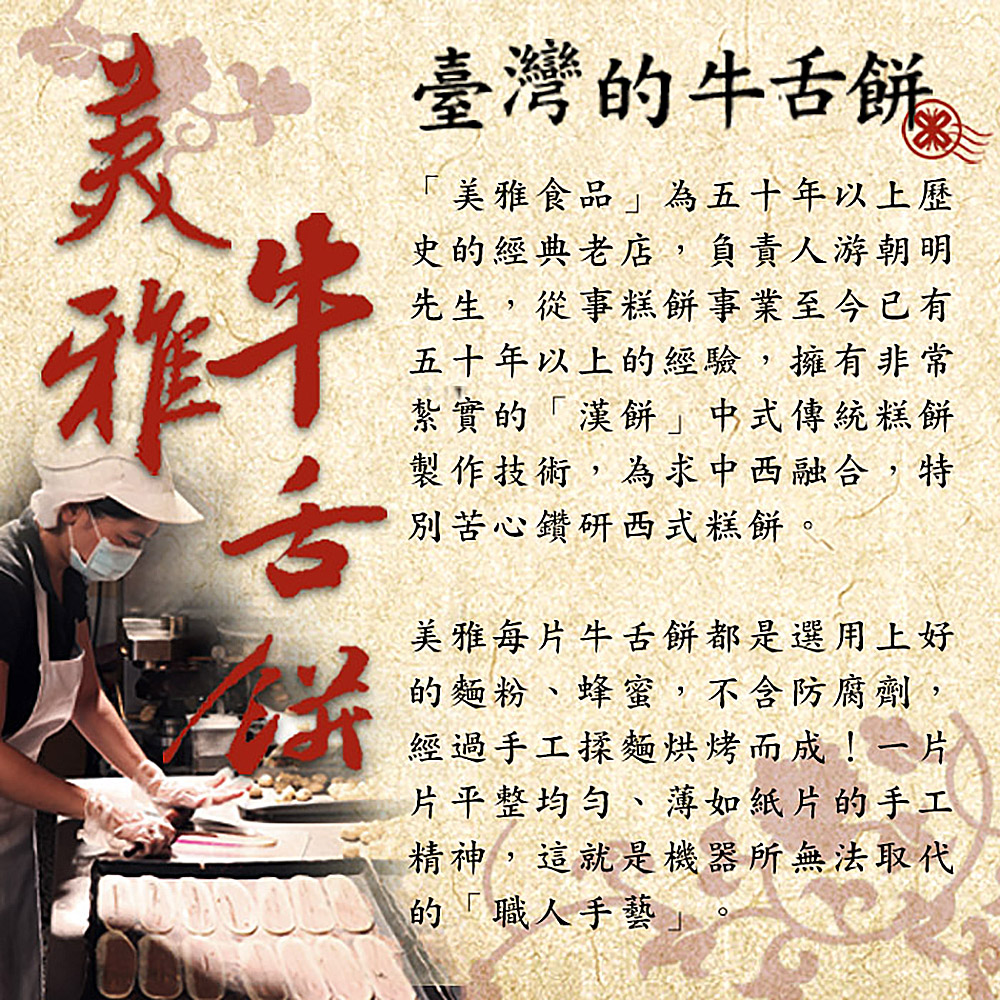 美雅
牛舌餅
臺灣的牛舌餅
「美雅食品」為五十年以上歷
史的經典老店，負責人游朝明
先生，從事糕餅事業至今已有
五十年以上的經驗，擁有非常
紮實的「漢餅」中式傳統糕餅
製作技術，為求中西融合，特
別苦心鑽研西式糕餅。
美雅每片牛舌餅都是選用上好
的麵粉、蜂蜜，不含防腐劑，
經過手工揉麵烘烤而成！一片
片平整均勻、薄如紙片的手工
精神，這就是機器所無法取代
的「職人手藝」。